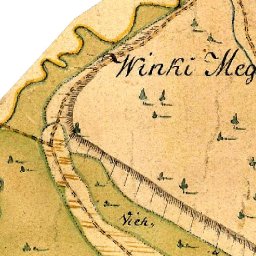 Winki Meg
Vieh.